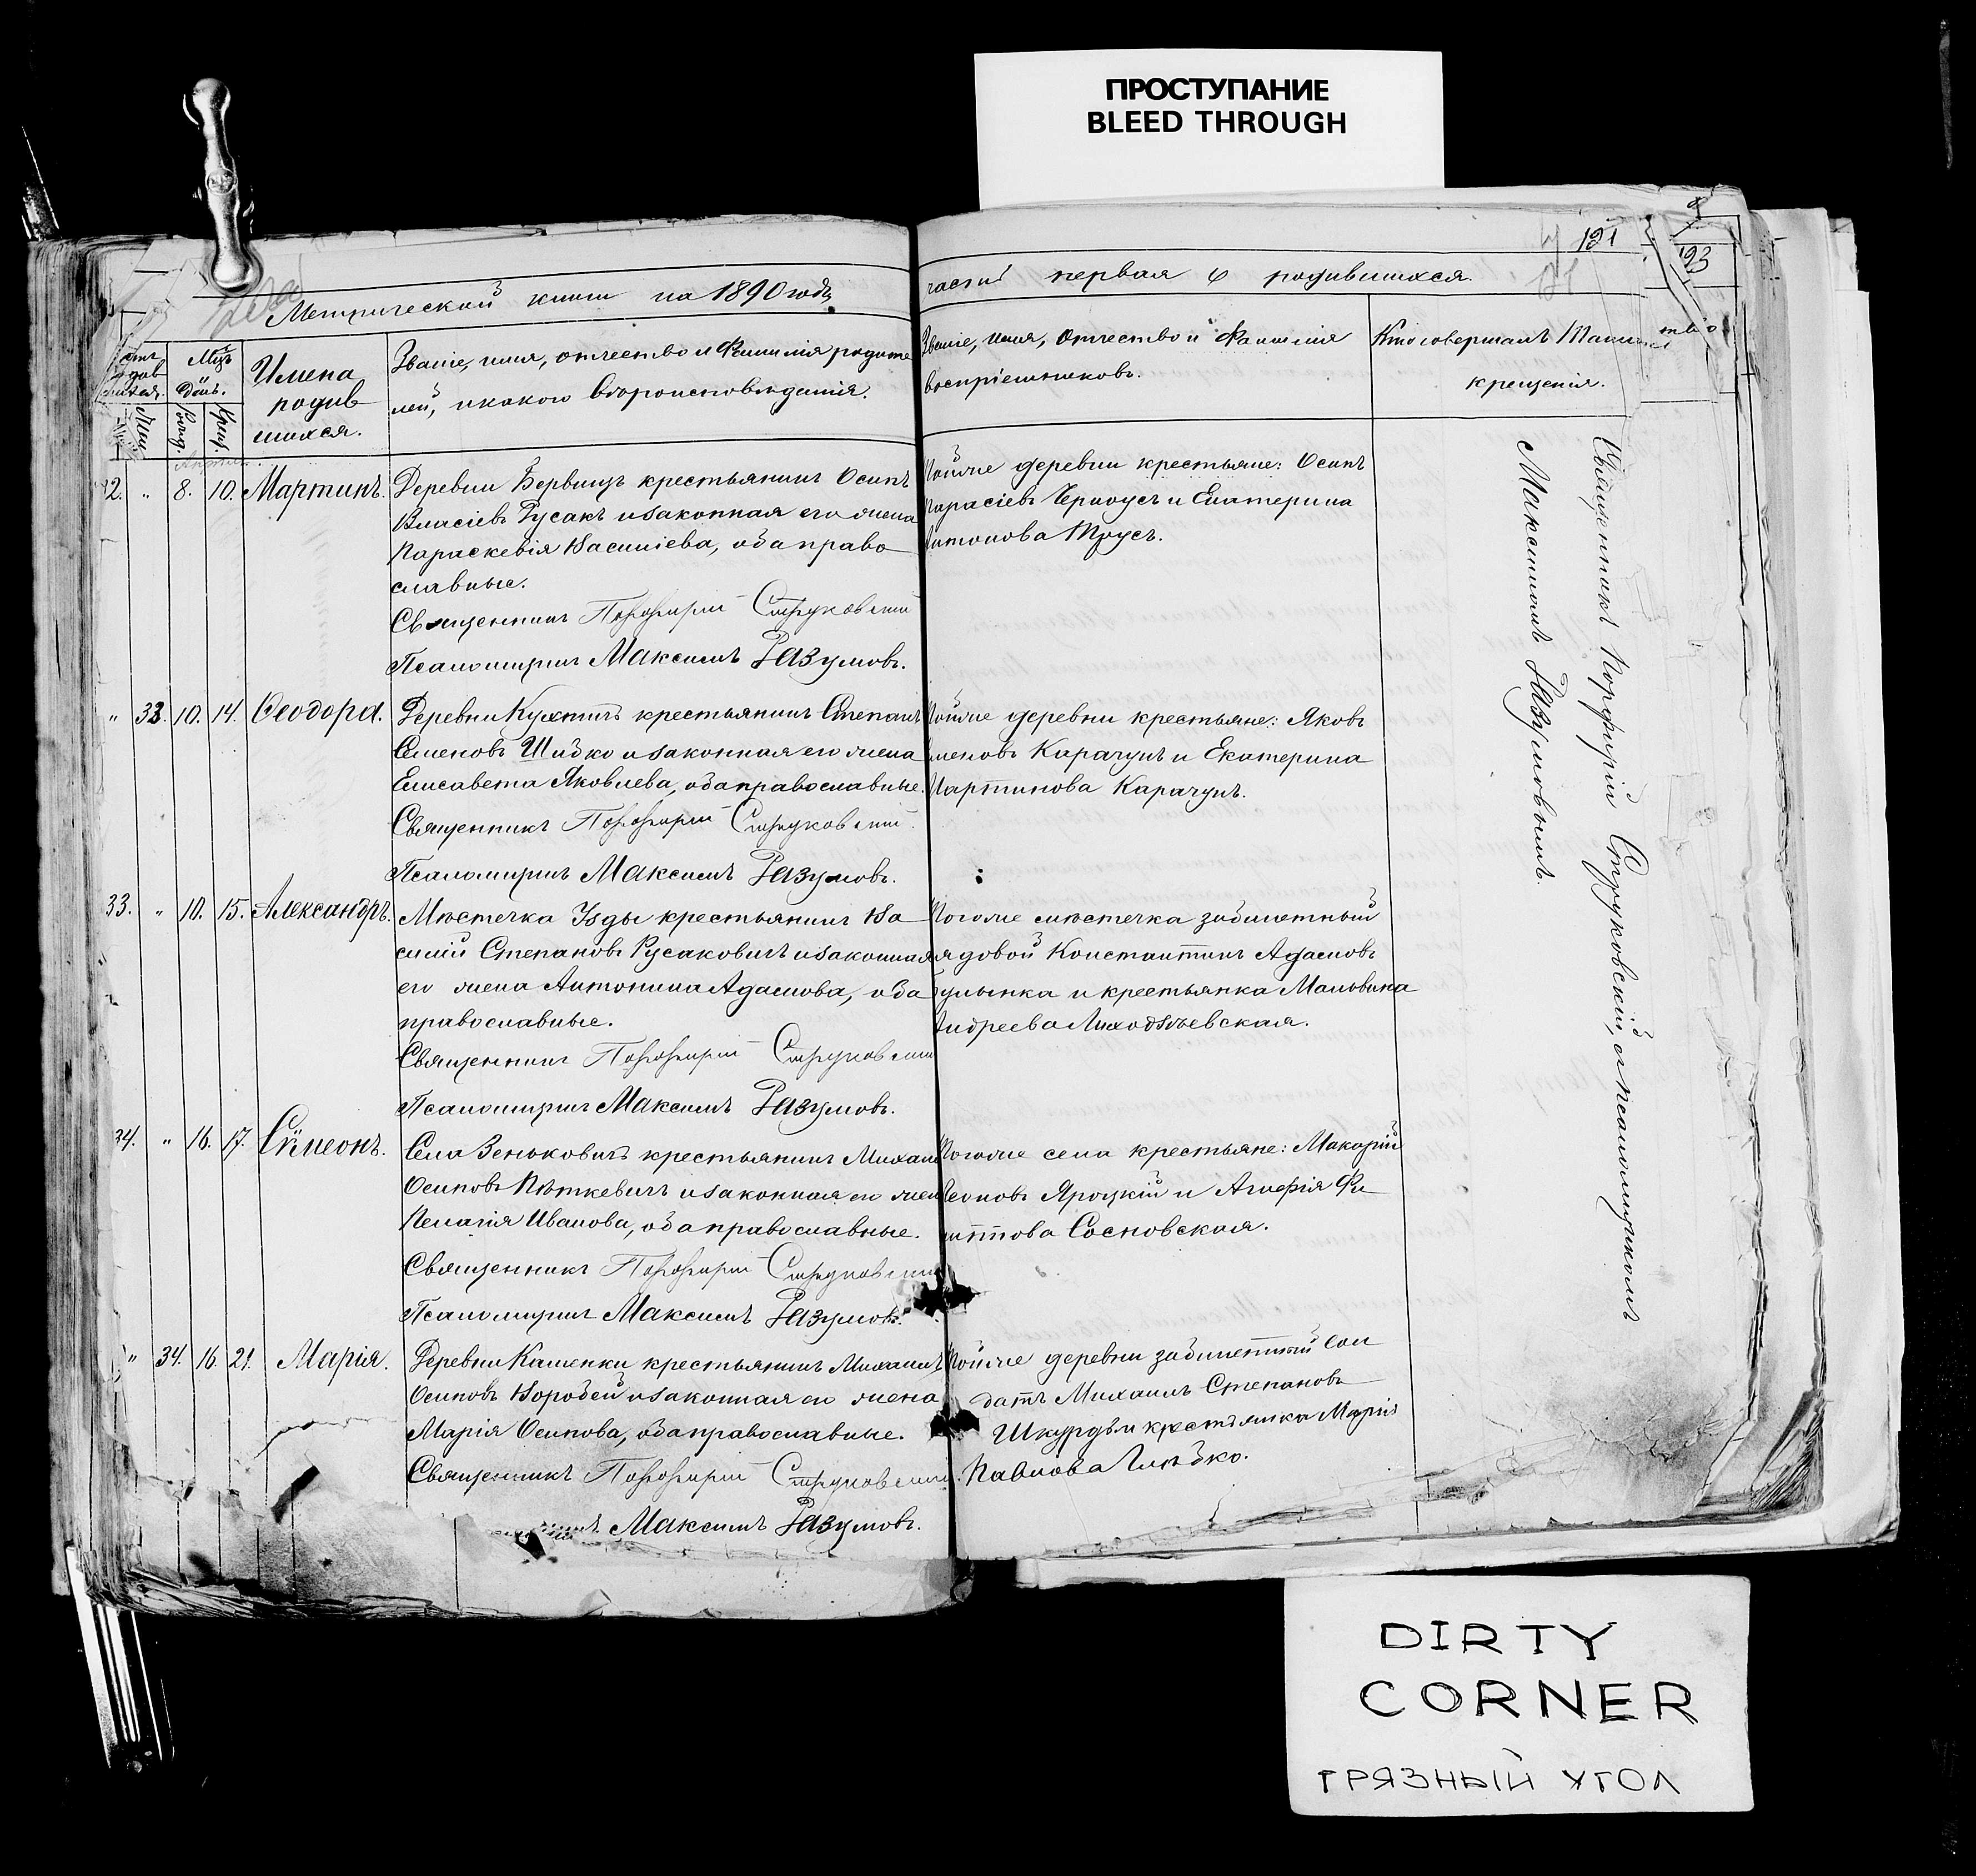 ПРОСТУПАНИЕ
BLEED THROUGH
Метрической книги на 1890 годъ
Мцъ
Днь.
Имена
родив
шихся.
Званіе, имя, отчество и Фамилія родите
лей, и какого вѣроисповѣданія.
32. " 8. 10. Мартинъ.
Деревни крестьянинъ Осипъ
Власіевъ Русакъ и законная его жена
Параскевія Василіева, оба право
славные.
Священникъ Порфирій Струковскій
Псаломщикъ Максимъ Разумовъ.
" 33. 10. 14. Ѳеодора.
Деревни Кухтичъ крестьянинъ Степанъ
Семеновъ Шидко и законная его жена
Елисавета Яковлева, оба православные.
Священникъ Порфирій Струковскій
Псаломщикъ Максимъ Разумовъ.
33. " 10. 15. Александръ.
Мѣстечка Узды крестьянинъ Ва
силій Степановъ Русаковичъ и законная
его жена Антонина Адамова, оба
православные.
Священникъ Порфирій Струковскій
Псаломщикъ Максимъ Разумовъ.
34. " 16. 17. Сѵмеонъ.
Села Зеньковичъ крестьянинъ Михаилъ
Осиповъ Пѣткевичъ и законная его жена
Пелагія Иванова, оба православные.
Священникъ Порфирій Струковскій
Псаломщикъ Максимъ Разумовъ.
" 34. 16. 21. Марія.
Деревни Каменки крестьянинъ Михаилъ
Осиповъ Воробей и законная его жена
Марія Осипова, оба православные.
Священникъ Порфирій Струковскій
Максимъ Разумовъ.
части первая о родившихся.
121
123
Званіе, имя, Отчество и Фамилія
воспріемниковъ.
Кто совершалъ Таинство
крещенія.
Тойже деревни крестьяне: Осипъ
Тарасіевъ Черноусъ и Екатерина
Антонова Трусъ.
Тойже деревни крестьяне: Яковъ
Семеновъ Карачунъ и Екатерина
Мартинова Карачунъ.
Тогоже мѣстечка забилетный
рядовой Константинъ Адамовъ
и крестьянка Мальвина
Андреева Лиходзѣевская.
Тогоже села крестьяне: Макарій
Леоновъ Яроцкій и Агафія Фи
липпова Сосновская.
Тойже деревни забилетный сол
датъ Михаилъ Степановъ
Шкурдь и крестьянка Марія
Павлова
Священникъ Порфирій Струковскій, съ псаломщикомъ
Максимомъ Разумовымъ.
DIRTY
CORNER
ГРЯЗНЫЙ УГОЛ